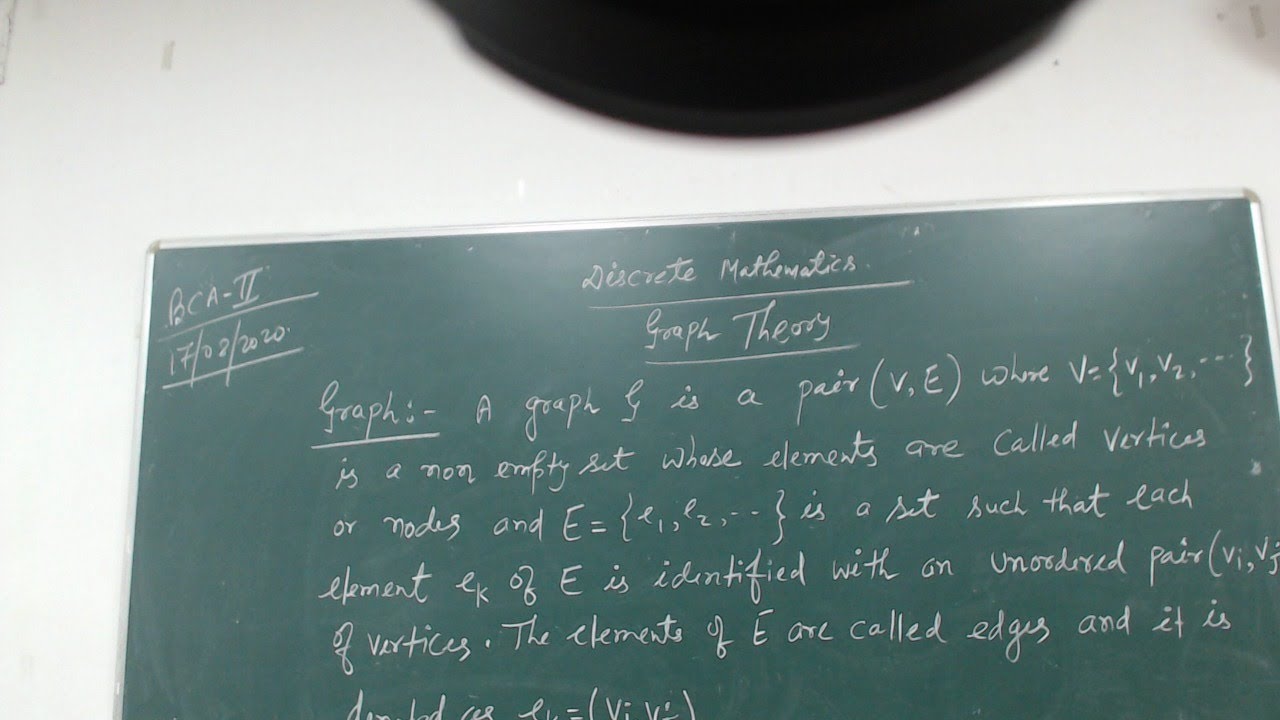 BCA-II
17/02/2020.
Discrete Mathematics.
Graph Theory
Graph:- A graph G is a pair (V, E) where V={v1, v2, ...}
is a non empty set whose elements are called vertices
or nodes and E = {e1, e2, ...} is a set such that each
element ek of E is identified with an unordered pair (vi, vj
of vertices. The elements of E are called edges and it is
denoted as ek = (vi, vj)